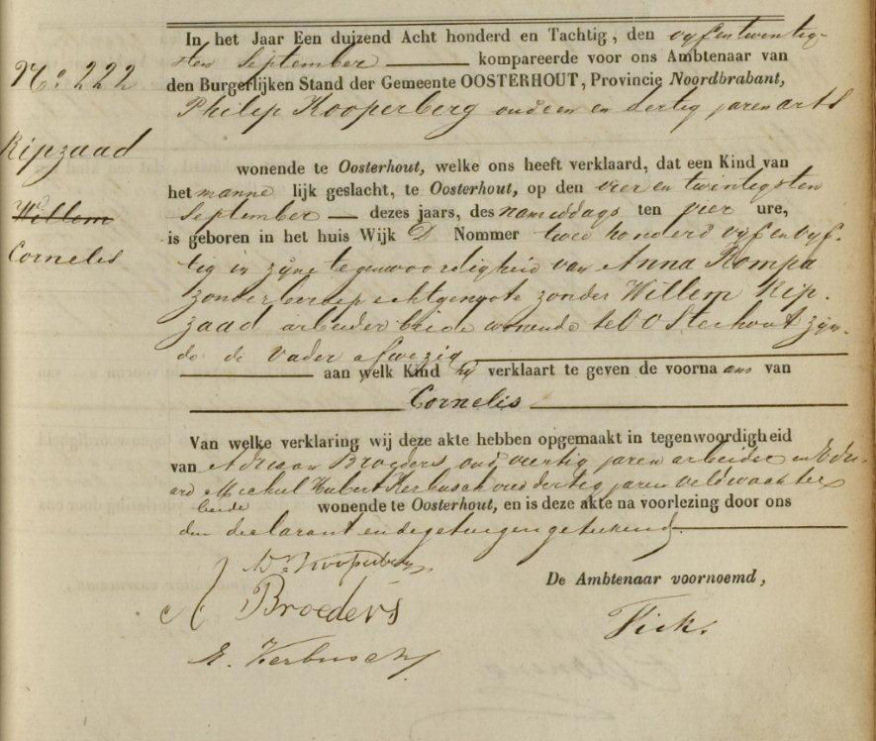 No 222
Ripzaad
Willem
Cornelis
In het Jaar Een duizend Acht honderd en Tachtig, den vyf en twintig-
sten September kompareerde voor ons Ambtenaar van
den Burgerlijken Stand der Gemeente OOSTERHOUT, Provincie Noordbrabant,
Philip Kooperberg oud en dertig jaren arts
wonende te Oosterhout, welke ons heeft verklaard, dat een Kind van
het manne lijk geslacht, te Oosterhout, op den vier en twintigsten
September dezes jaars, des namiddags ten vier ure,
is geboren in het huis Wijk D Nommer twee honderd vyf en vyf-
tig in zyne tegenwoordigheid van Anna Rompa
zonder beroep echtgenoote zonder Willem Rip-
zaad arbeider beide wonende te Oosterhout zyn-
de de vader afwezig
aan welk Kind hy verklaart te geven de voorna am van
Cornelis
Van welke verklaring wij deze akte hebben opgemaakt in tegenwoordigheid
van Adriaan Broeders oud veertig jaren arbeider en Edu-
ard Michiel Hubert Kerbusch oud dertig jaren veldwachter
beide wonende te Oosterhout, en is deze akte na voorlezing door ons
den declarant en de getuigen geteekend.
Kooperberg
A Broeders
E. Kerbusch
De Ambtenaar voornoemd,
Fick.